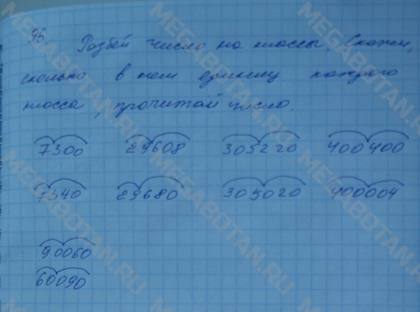 96 Разбей число на классы. Скажи,
сколько в нем единиц каждого
класса, прочитай число.
7300 29608 305220 400400
7340 29680 305020 400004
90060
60090
MEGABOTAN.RU